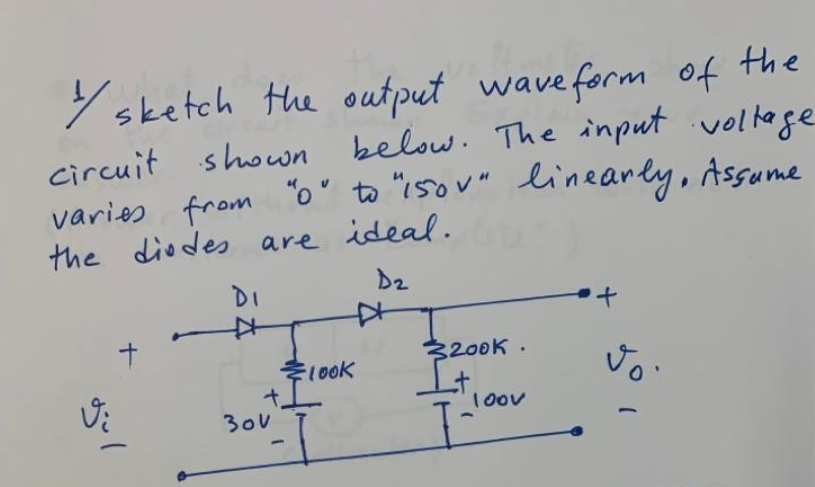 1/ sketch the output waveform of the
circuit shown below. The input voltage
varies from "0" to "150v" linearly. Assume
the diodes are ideal.
D1
D2
+
+
100K
200K.
Vi
-
+
30V
-
+
100V
-
Vo.
-